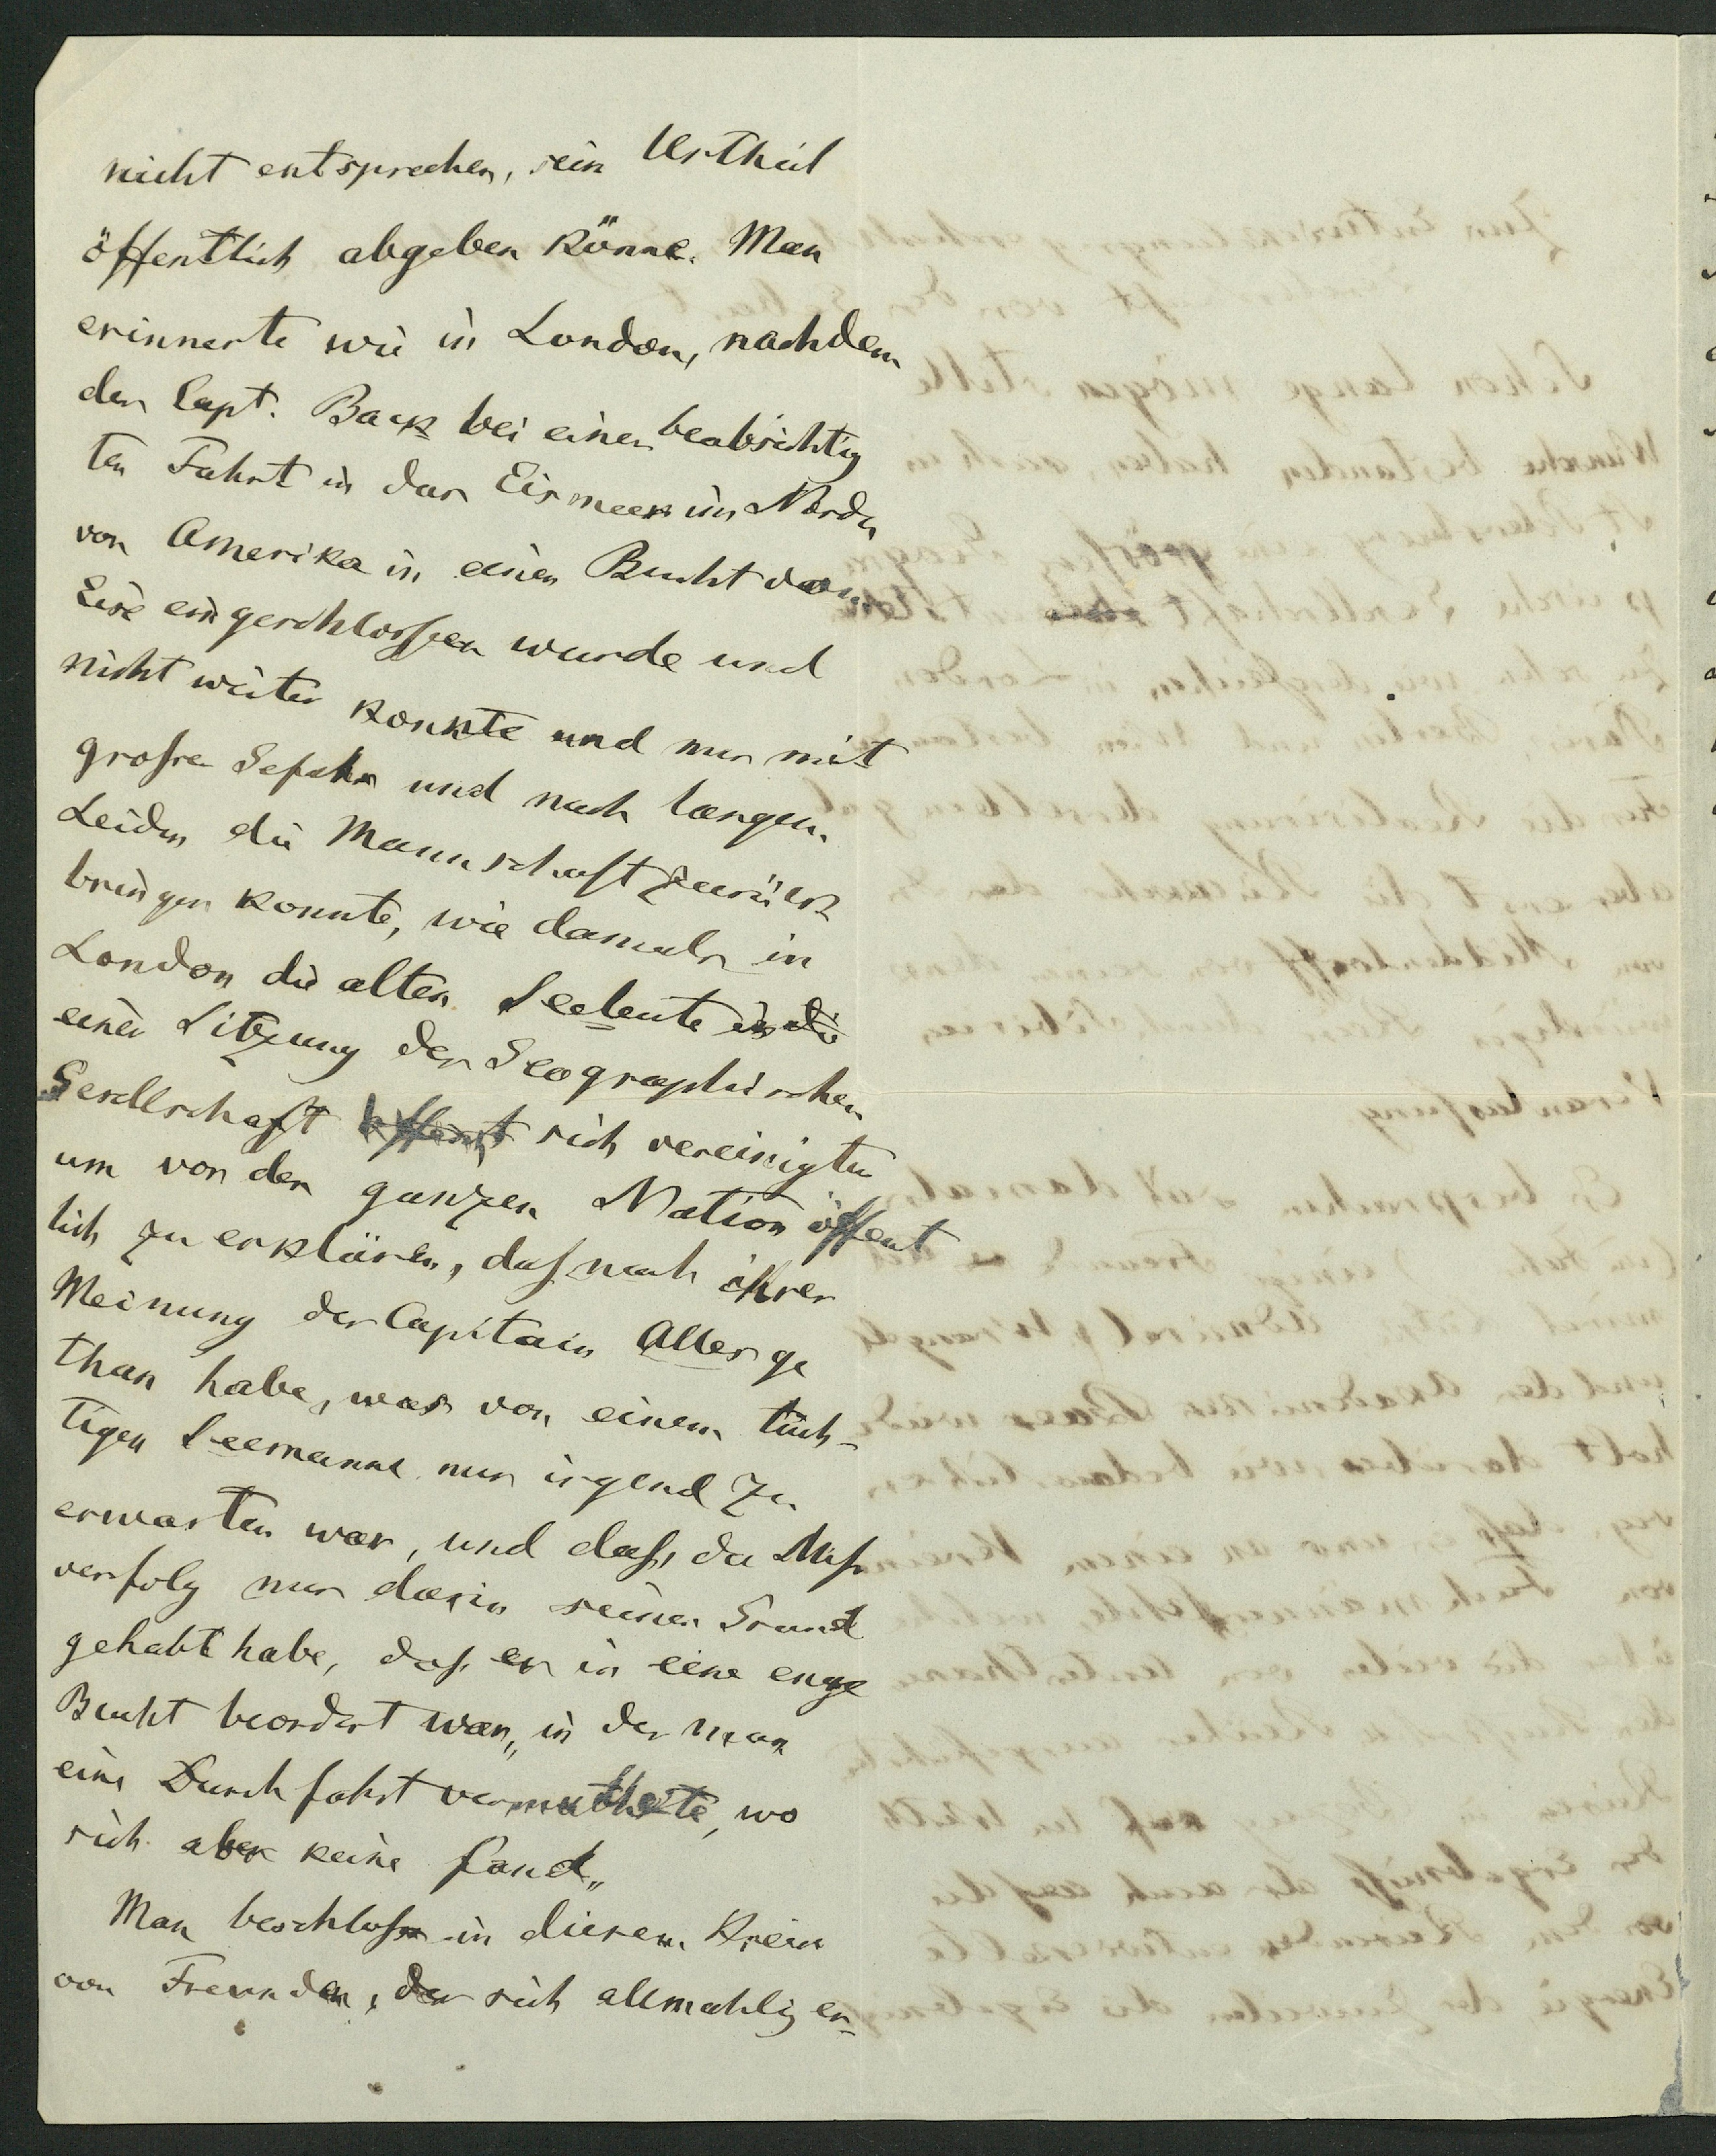 nicht entsprechen, sein Urtheil
öffentlich abgeben könne. Man
erinnerte wie in London, nachdem
der Capt. Back bei einer beabsichtig
ten Fahrt in das Eismeer im Norden
von Amerika in einer Bucht vom
Eise eingeschlossen wurde und
nicht weiter konnte und nur mit
großer Gefahr und nach langen
Leiden die Mannschaft zurück
bringen konnte, wie damals in
London die alten Seeleute in die
einer Sitzung der Geographischen
Gesellschaft öffent sich vereinigten
um von der ganzen Nation öffent
lich zu erklären, daß nach ihrer
Meinung der Capitain Alles ge
than habe, was von einem tüch-
tigen Seemanne nur irgend zu
erwarten war, und daß, der Miß
verfolg nur darin seinen Grund
gehabt habe, daß er in eine enge
Bucht beordert war, in der man
eine Durchfahrt vermuthete, wo
sich aber keine fand„
Man beschloß in diesem Kreise
von Freunden, der sich allmahlig er-